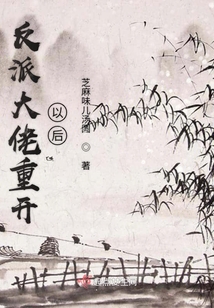 反派大佬重开
以后
芝麻味儿汤圆◎著